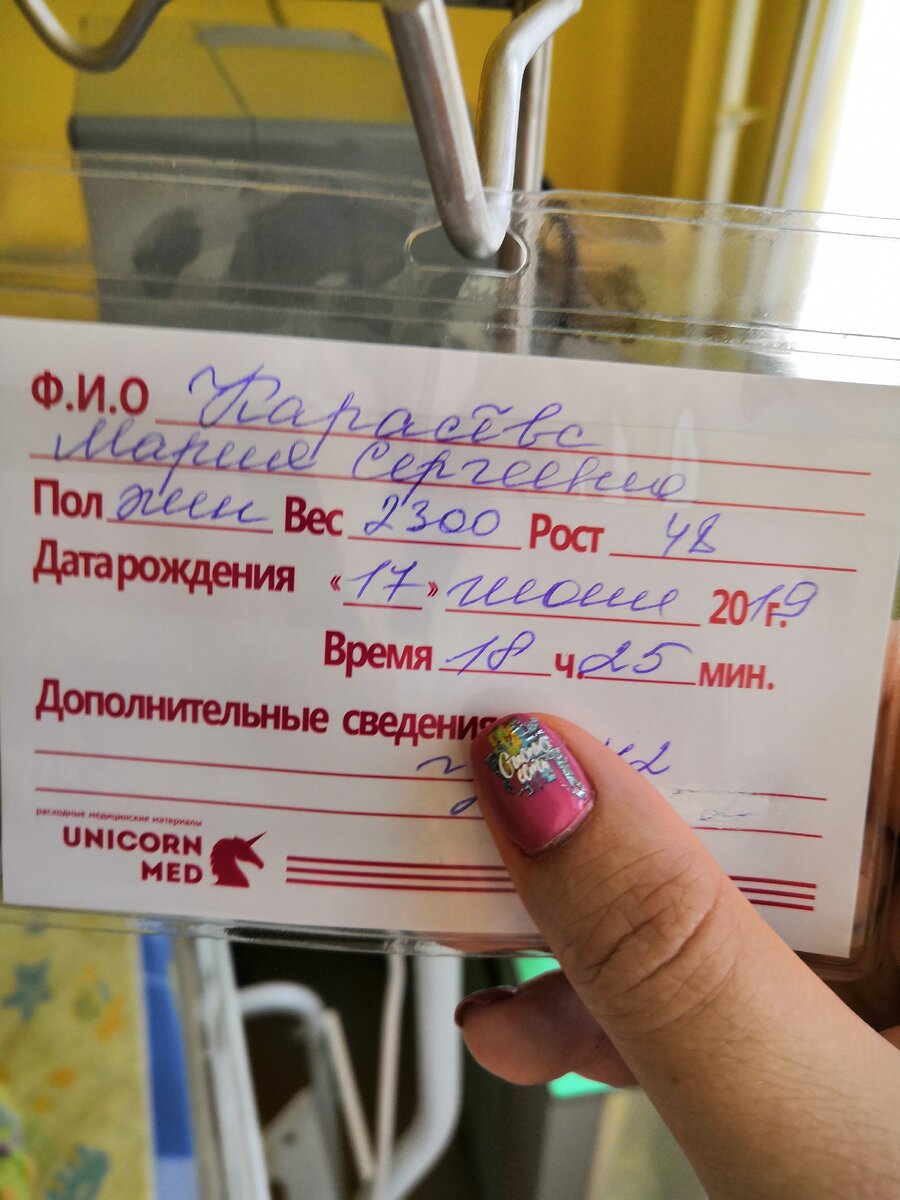 Ф.И.О Карасёва
Мария Сергеевна
Пол жен Вес 2300 Рост 48
Дата рождения «17» июня 2019 г.
Время 18 ч. 25 мин.
Дополнительные сведения
расходные медицинские материалы
UNICORN
MED